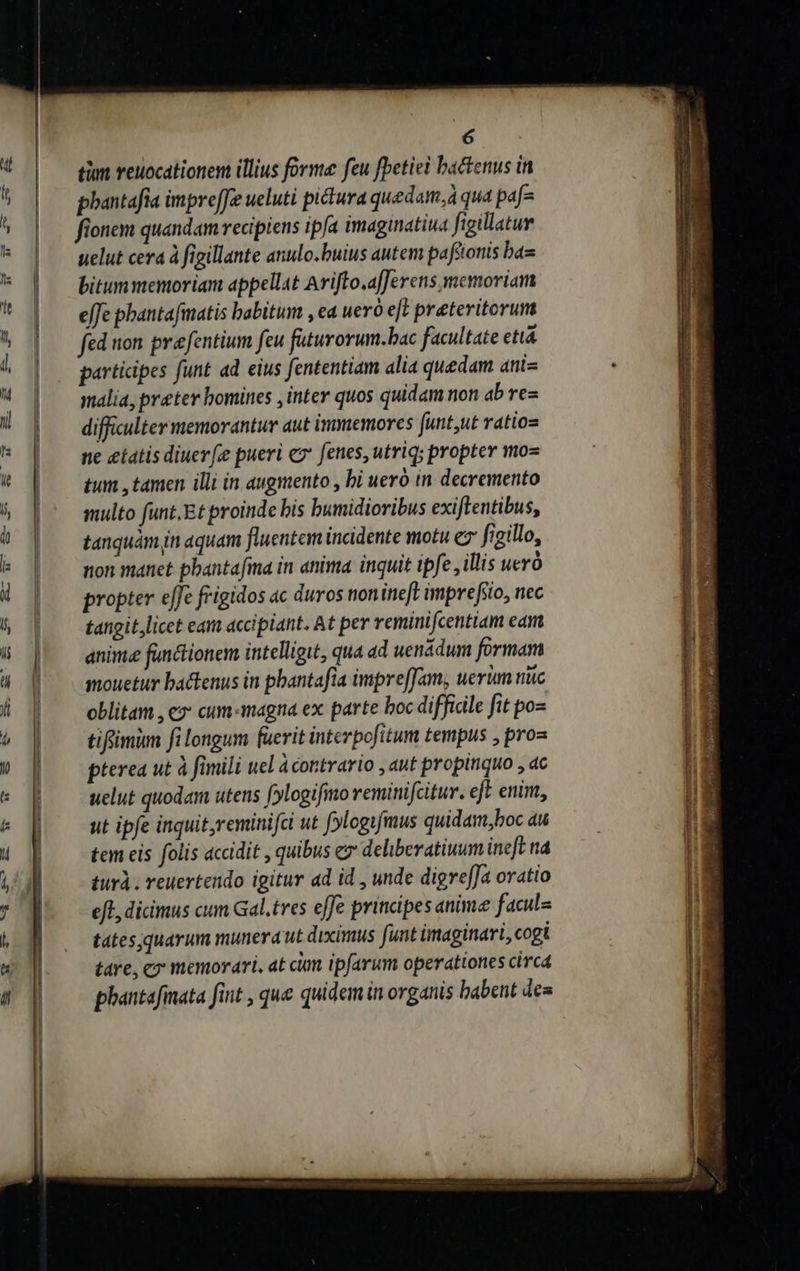 6
tùm reuocationem illius formæ seu spetiei hactenus in
phantasia impressæ ueluti pictura quædam,à qua pas=
sionem quandam recipiens ipsa imaginatiua sigillatur
uelut cera à sigillante anulo.huius autem passionis ha=
bitum memoriam appellat Aristo.asserens,memoriam
esse phantasmatis habitum , ea uerò est præteritorum
sed non præsentium seu futurorum.hac facultate etiã
participes sunt ad eius sententiam alia quædam ani=
malia, præter homines , inter quos quidam non ab re=
difficulter memorantur aut immemores sunt,ut ratio=
ne ætatis diuersæ pueri & senes, utriq; propter mo=
tum , tamen illi in augmento , hi uerò in decremento
multo sunt.Et proinde his humidioribus existentibus,
tanquàm in aquam fluentem incidente motu & sigillo,
non manet phantasma in anima inquit ipse , illis uerò
propter esse frigidos ac duros non inest impressio, nec
tangit,licet eam accipiant. At per reminiscentiam eam
animæ functionem intelligit, qua ad uenãdum formam
mouetur hactenus in phantasia impressam, uerùm nũc
oblitam , & cum magna ex parte hoc difficile fit po=
tissimùm si longum fuerit interpositum tempus , pro=
pterea ut à simili uel à contrario , aut propinquo , ac
uelut quodam utens sylogismo reminiscitur. est enim,
ut ipse inquit,reminisci ut sylogismus quidam,hoc au
tem eis solis accidit , quibus & deliberatiuum inest na
turà . reuertendo igitur ad id , unde digressa oratio
est, dicimus cum Gal.tres esse principes animæ facul=
tates,quarum munera ut diximus sunt imaginari, cogi
tare, & memorari. at cùm ipsarum operationes circa
phantasmata sint , quæ quidem in organis habent de=